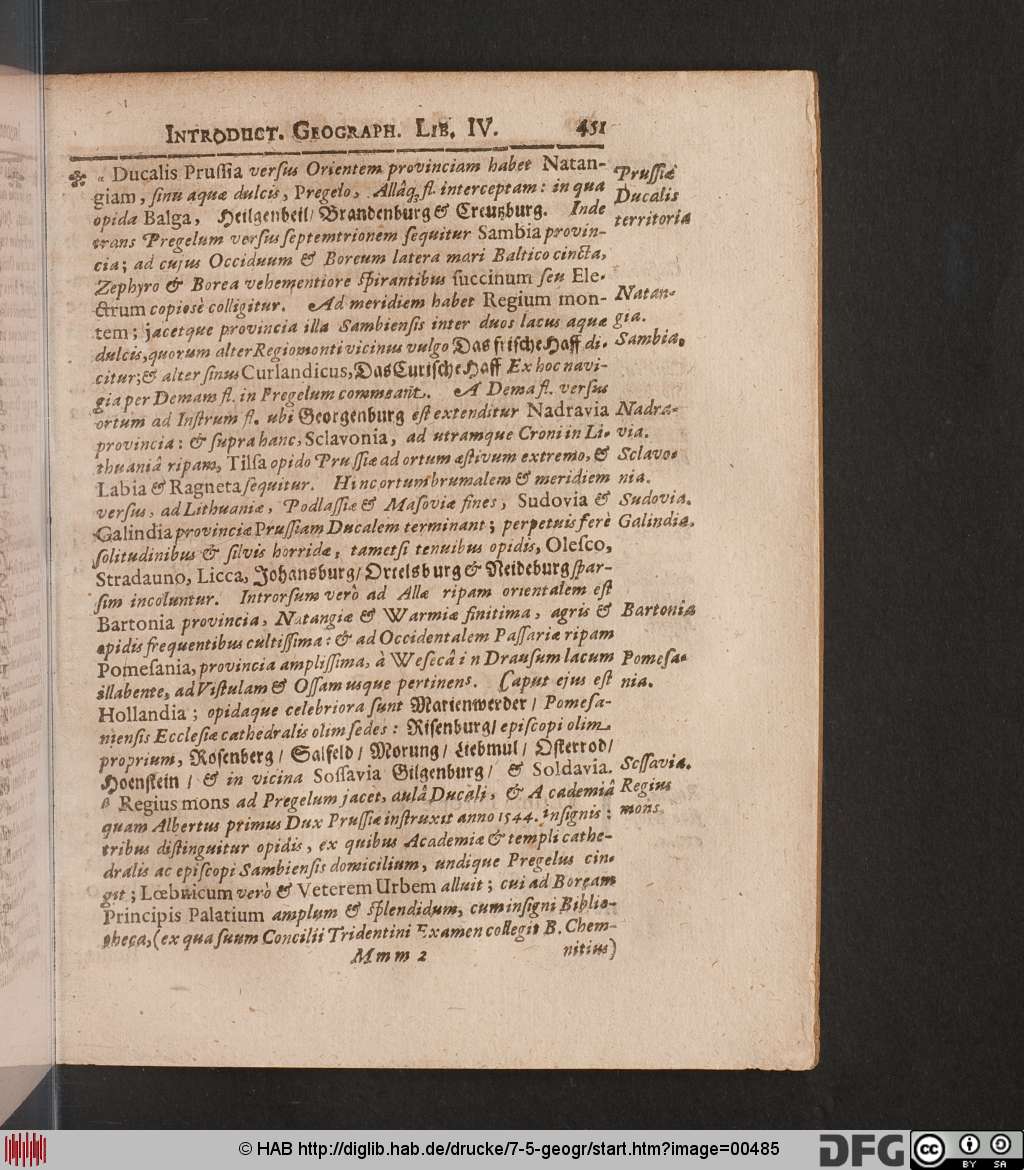 INTRODUCT. GEOGRAPH. LIB. IV. 451
Ducalis Prussia versus Orientem provinciam habet Natan-
giam, sinu aquæ dulcis, Pregelo, Allâq; fl. interceptam: in qua
opida Balga, Heilgenbeil/ Brandenburg & Creutzburg. Inde
trans Pregelum versus septemtrionem sequitur Sambia provin-
cia; ad cujus Occiduum & Boreum latera mari Baltico cincta,
Zephyro & Borea vehementiore spirantibus succinum seu Ele-
ctrum copiosè colligitur. Ad meridiem habet Regium mon-
tem; jacetque provincia illa Sambiensis inter duos lacus aquæ
dulcis, quorum alter Regiomonti vicinus vulgo Das frische Haff di-
citur; & alter sinus Curlandicus, Das Curische Haff Ex hoc navi-
gia per Demam fl. in Pregelum commeant. A Dema fl. versus
ortum ad Instrum fl. ubi Georgenburg est extenditur Nadravia
provincia: & supra hanc, Sclavonia, ad utramque Croni in Li-
thuaniâ ripam, Tilsa opido Prussiæ ad ortum æstivum extremo, &
Labia & Ragneta sequitur. Hinc ortum brumalem & meridiem
versus, ad Lithuaniæ, Podlassiæ & Masoviæ fines, Sudovia &
Galindia provinciæ Prussiam Ducalem terminant; perpetuis ferè
solitudinibus & silvis horridæ, tametsi tenuibus opidis, Olesco,
Stradauno, Licca, Johansburg/ Ortelsburg & Neideburg spar-
sim incoluntur. Introrsum verò ad Allæ ripam orientalem est
Bartonia provincia, Natangiæ & Warmiæ finitima, agris &
opidis frequentibus cultissima: & ad Occidentalem Passariæ ripam
Pomesania, provincia amplissima, à Wesecâ in Drausum lacum
illabente, ad Vistulam & Ossam usque pertinens. Caput ejus est
Hollandia; opidaque celebriora sunt Marienwerder/ Pomesa-
niensis Ecclesiæ cathedralis olim sedes: Risenburg/ episcopi olim
proprium, Rosenberg/ Salfeld/ Morung/ Liebmul/ Osterrod/
Hoenstein/ & in vicina Sossavia Gilgenburg/ & Soldavia.
Regius mons ad Pregelum jacet, aulâ Ducali, & Academiâ
quam Albertus primus Dux Prussiæ instruxit anno 1544. insignis:
tribus distinguitur opidis, ex quibus Academiæ & templi cathe-
dralis ac episcopi Sambiensis domicilium, undique Pregelus cin-
git; Lœbnicum verò & Veterem Urbem alluit; cui ad Boream
Principis Palatium amplum & splendidum, cum insigni Biblio-
theca, (ex qua suum Concilii Tridentini Examen collegit B. Chem-
Mmm 2 nitius)
Prussiæ
Ducalis
territoria
Natan-
gia.
Sambia.
Nadra-
via.
Sclavo-
nia.
Sudovia.
Galindia.
Bartonia
Pomesa-
nia.
Sossavia.
Regius
mons.
© HAB http://diglib.hab.de/drucke/7-5-geogr/start.htm?image=00485
DFG
cc
BY SA